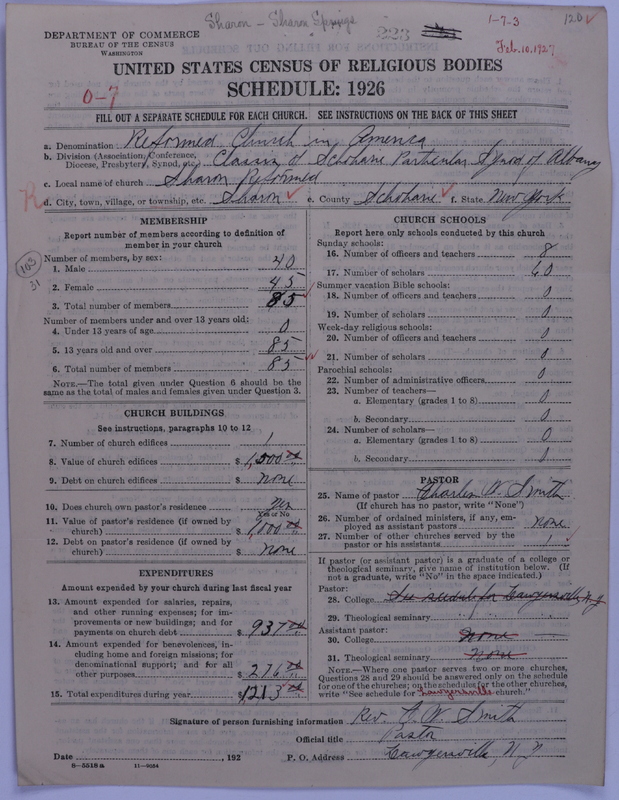 Sharon - Sharon Springs
223
1-7-3
120
Feb. 10. 1927
DEPARTMENT OF COMMERCE
BUREAU OF THE CENSUS
WASHINGTON
UNITED STATES CENSUS OF RELIGIOUS BODIES
SCHEDULE: 1926
0-7
FILL OUT A SEPARATE SCHEDULE FOR EACH CHURCH. SEE INSTRUCTIONS ON THE BACK OF THIS SHEET
a. Denomination Reformed Church in America
b. Division (Association, Conference, Diocese, Presbytery, Synod, etc.) Classis of Schoharie Particular Synod of Albany
c. Local name of church Sharon Reformed
R
d. City, town, village, or township, etc. Sharon e. County Schoharie f. State New York
MEMBERSHIP
Report number of members according to definition of
member in your church
103
31
Number of members, by sex:
1. Male 40
2. Female 45
3. Total number of members 85
Number of members under and over 13 years old:
4. Under 13 years of age 0
5. 13 years old and over 85
6. Total number of members 85
NOTE.—The total given under Question 6 should be the
same as the total of males and females given under Question 3.
CHURCH BUILDINGS
See instructions, paragraphs 10 to 12
7. Number of church edifices 1
8. Value of church edifices $ 1,500
9. Debt on church edifices $ none
10. Does church own pastor's residence Yes
Yes or No
11. Value of pastor's residence (if owned by
church) $ 1,000
12. Debt on pastor's residence (if owned by
church) $ none
EXPENDITURES
Amount expended by your church during last fiscal year
13. Amount expended for salaries, repairs,
and other running expenses; for im-
provements or new buildings; and for
payments on church debt $ 937
14. Amount expended for benevolences, in-
cluding home and foreign missions; for
denominational support; and for all
other purposes $ 276
15. Total expenditures during year $ 1213
CHURCH SCHOOLS
Report here only schools conducted by this church
Sunday schools:
16. Number of officers and teachers 8
17. Number of scholars 60
Summer vacation Bible schools:
18. Number of officers and teachers 0
19. Number of scholars 0
Week-day religious schools:
20. Number of officers and teachers 0
21. Number of scholars 0
Parochial schools:
22. Number of administrative officers 0
23. Number of teachers—
a. Elementary (grades 1 to 8) 0
b. Secondary 0
24. Number of scholars—
a. Elementary (grades 1 to 8) 0
b. Secondary 0
PASTOR
25. Name of pastor Charles W. Smith
(If church has no pastor, write "None")
26. Number of ordained ministers, if any, em-
ployed as assistant pastors none
27. Number of other churches served by the
pastor or his assistants 1
If pastor (or assistant pastor) is a graduate of a college or
theological seminary, give name of institution below. (If
not a graduate, write "No" in the space indicated.)
Pastor:
28. College See schedule for Lawyersville, N.Y.
29. Theological seminary
Assistant pastor:
30. College None
31. Theological seminary None
NOTE.—Where one pastor serves two or more churches,
Questions 28 and 29 should be answered only on the schedule
for one of the churches; on the schedules for the other churches,
write "See schedule for Lawyersville church."
Signature of person furnishing information Rev. C. W. Smith
Official title Pastor
Date , 192 P. O. Address Lawyersville, N.Y.
8-5518a 11-9054